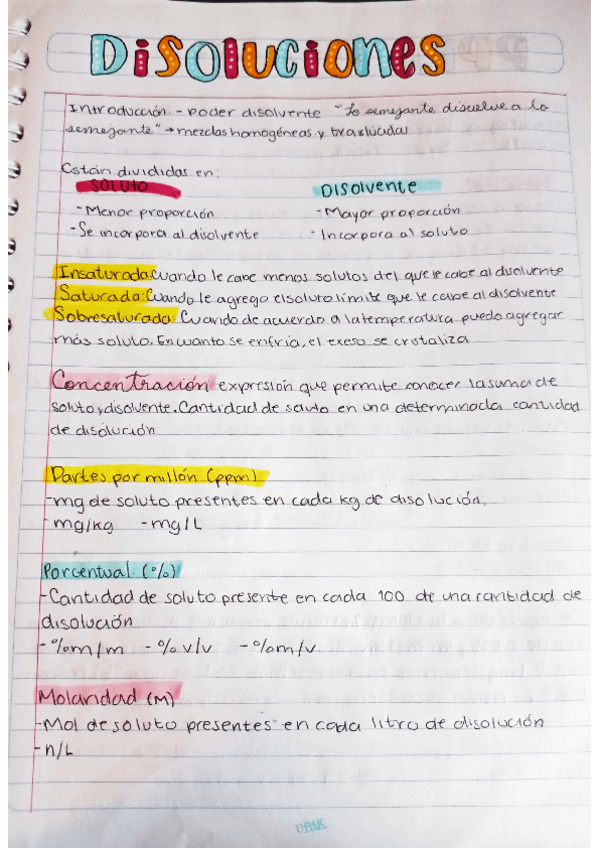 DiSOLUCiONEs
Introducción - Poder disolvente "Lo semejante disuelve a lo
semejante" → mezclas homogéneas y traslúcidas
Están divididas en:
SOLUTO DISolvente
- Menor proporción - Mayor proporción
- Se incorpora al disolvente - Incorpora al soluto
Insaturada: Cuando le cabe menos solutos del que le cabe al disolvente
Saturada: Cuando le agrego el soluto límite que le cabe al disolvente
Sobresaturada: Cuando de acuerdo a la temperatura puedo agregar
más soluto. En cuanto se enfría, el exeso se cristaliza
Concentración expresión que permite conocer la suma de
soluto y disolvente. Cantidad de soluto en una determinada cantidad
de disolución
Partes por millón (ppm)
- mg de soluto presentes en cada kg de disolución.
- mg/kg - mg/L
Porcentual (%)
- Cantidad de soluto presente en cada 100 de una cantidad de
disolución
- %m/m - %v/v - %m/v
Molaridad (M)
- Mol de soluto presentes en cada litro de disolución
- n/L